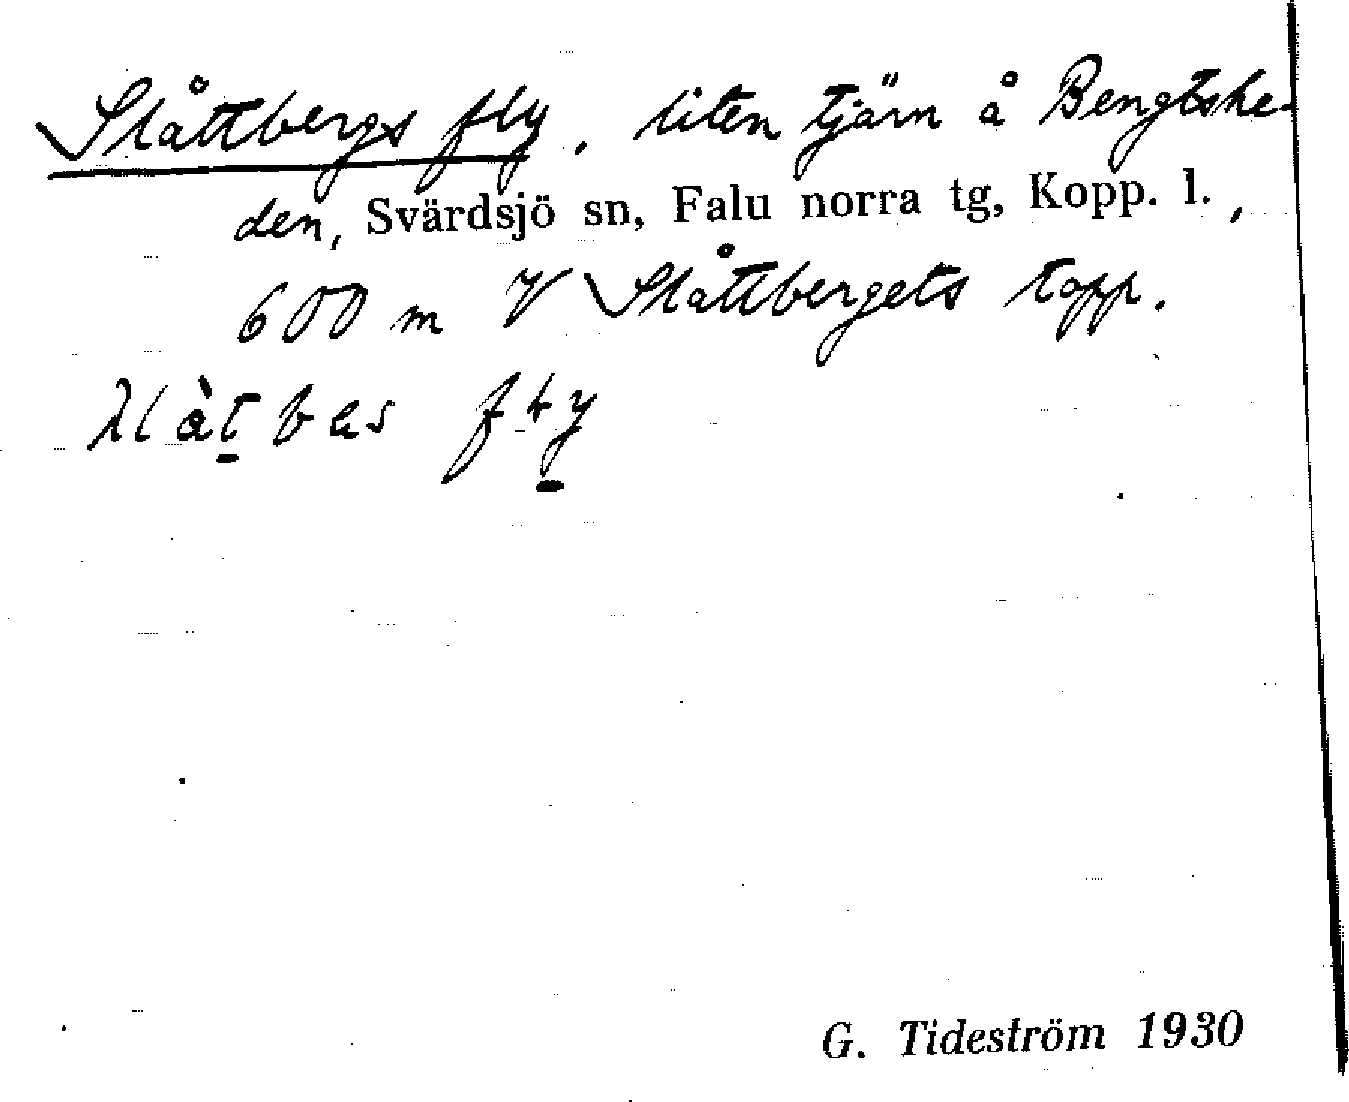 Slåttbergs fly, liten tjärn å Bengtshe-
den, Svärdsjö sn, Falu norra tg, Kopp. l.,
600 m V Slåttbergets topp.
fly
G. Tideström 1930